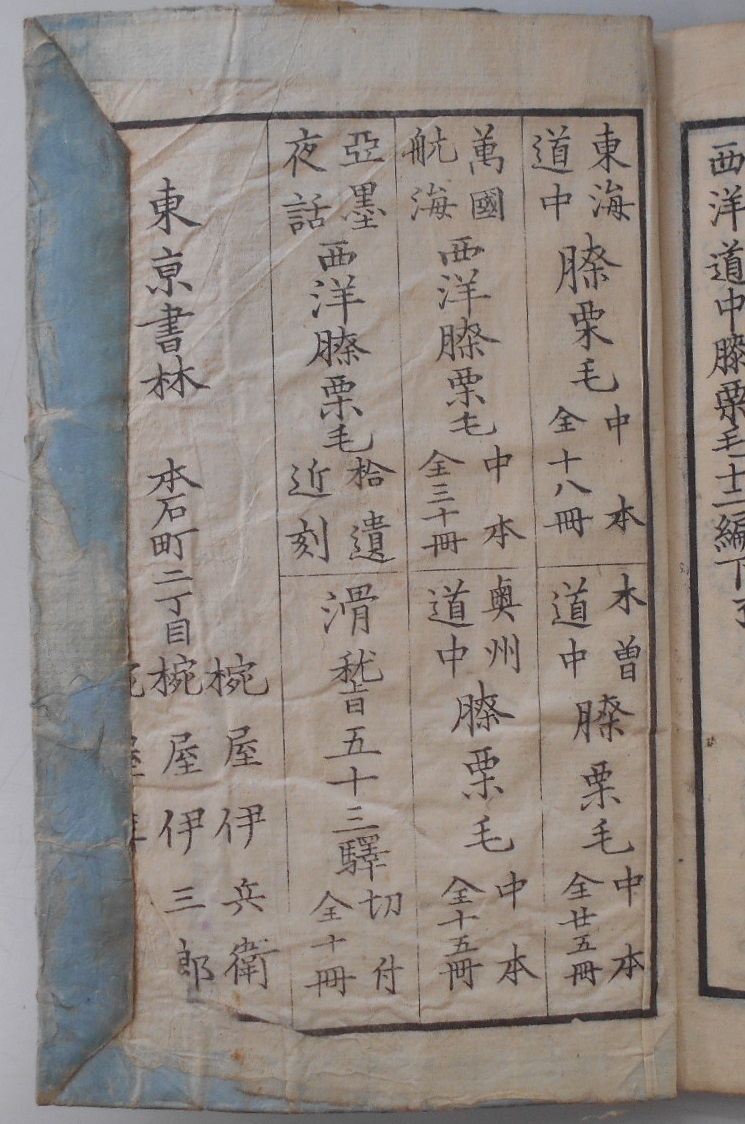 西洋道中膝栗毛十二編下了
東海
道中
膝栗毛
中本
全十八冊
木曽
道中
膝栗毛
中本
全廿五冊
萬國
航海
西洋膝栗毛
中本
全三十冊
奥州
道中
膝栗毛
中本
全十五冊
亞墨
夜話
西洋膝栗毛
拾遺
近刻
滑稽五十三驛
切付
全十冊
東京書林
本石町二丁目
椀屋伊兵衛
椀屋伊三郎